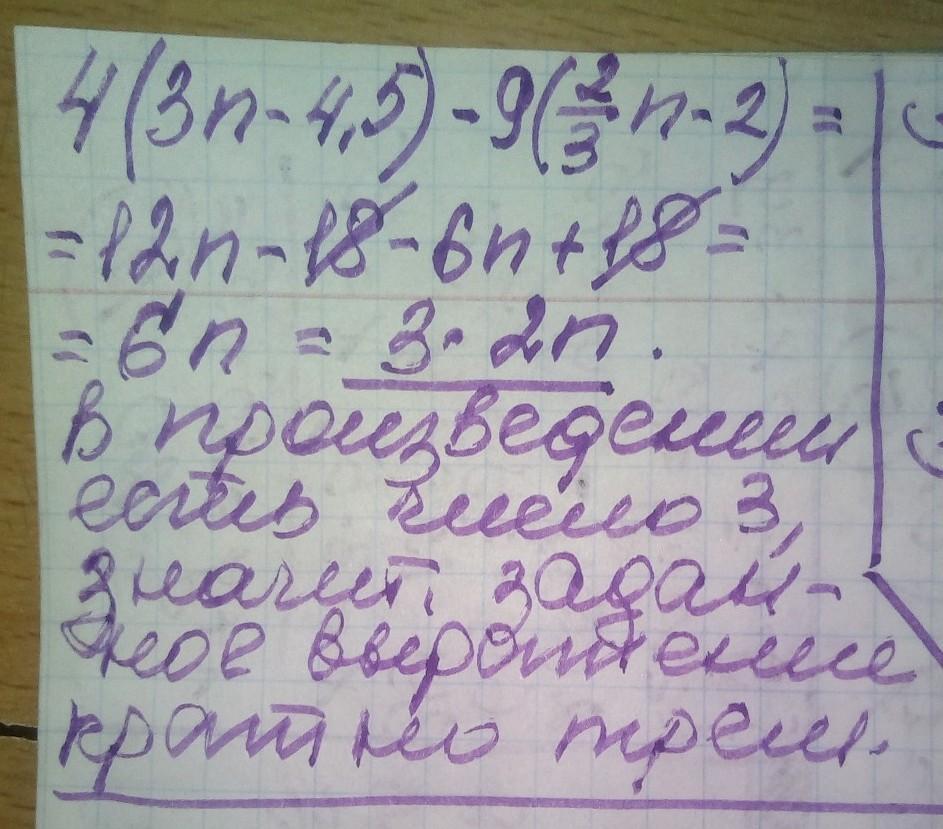 4(3n-4,5)-9(2/3n-2)=
=12n-18-6n+18=
=6n = 3·2n.
В произведении
есть число 3,
значит, задан-
ное выражение
кратно трем.